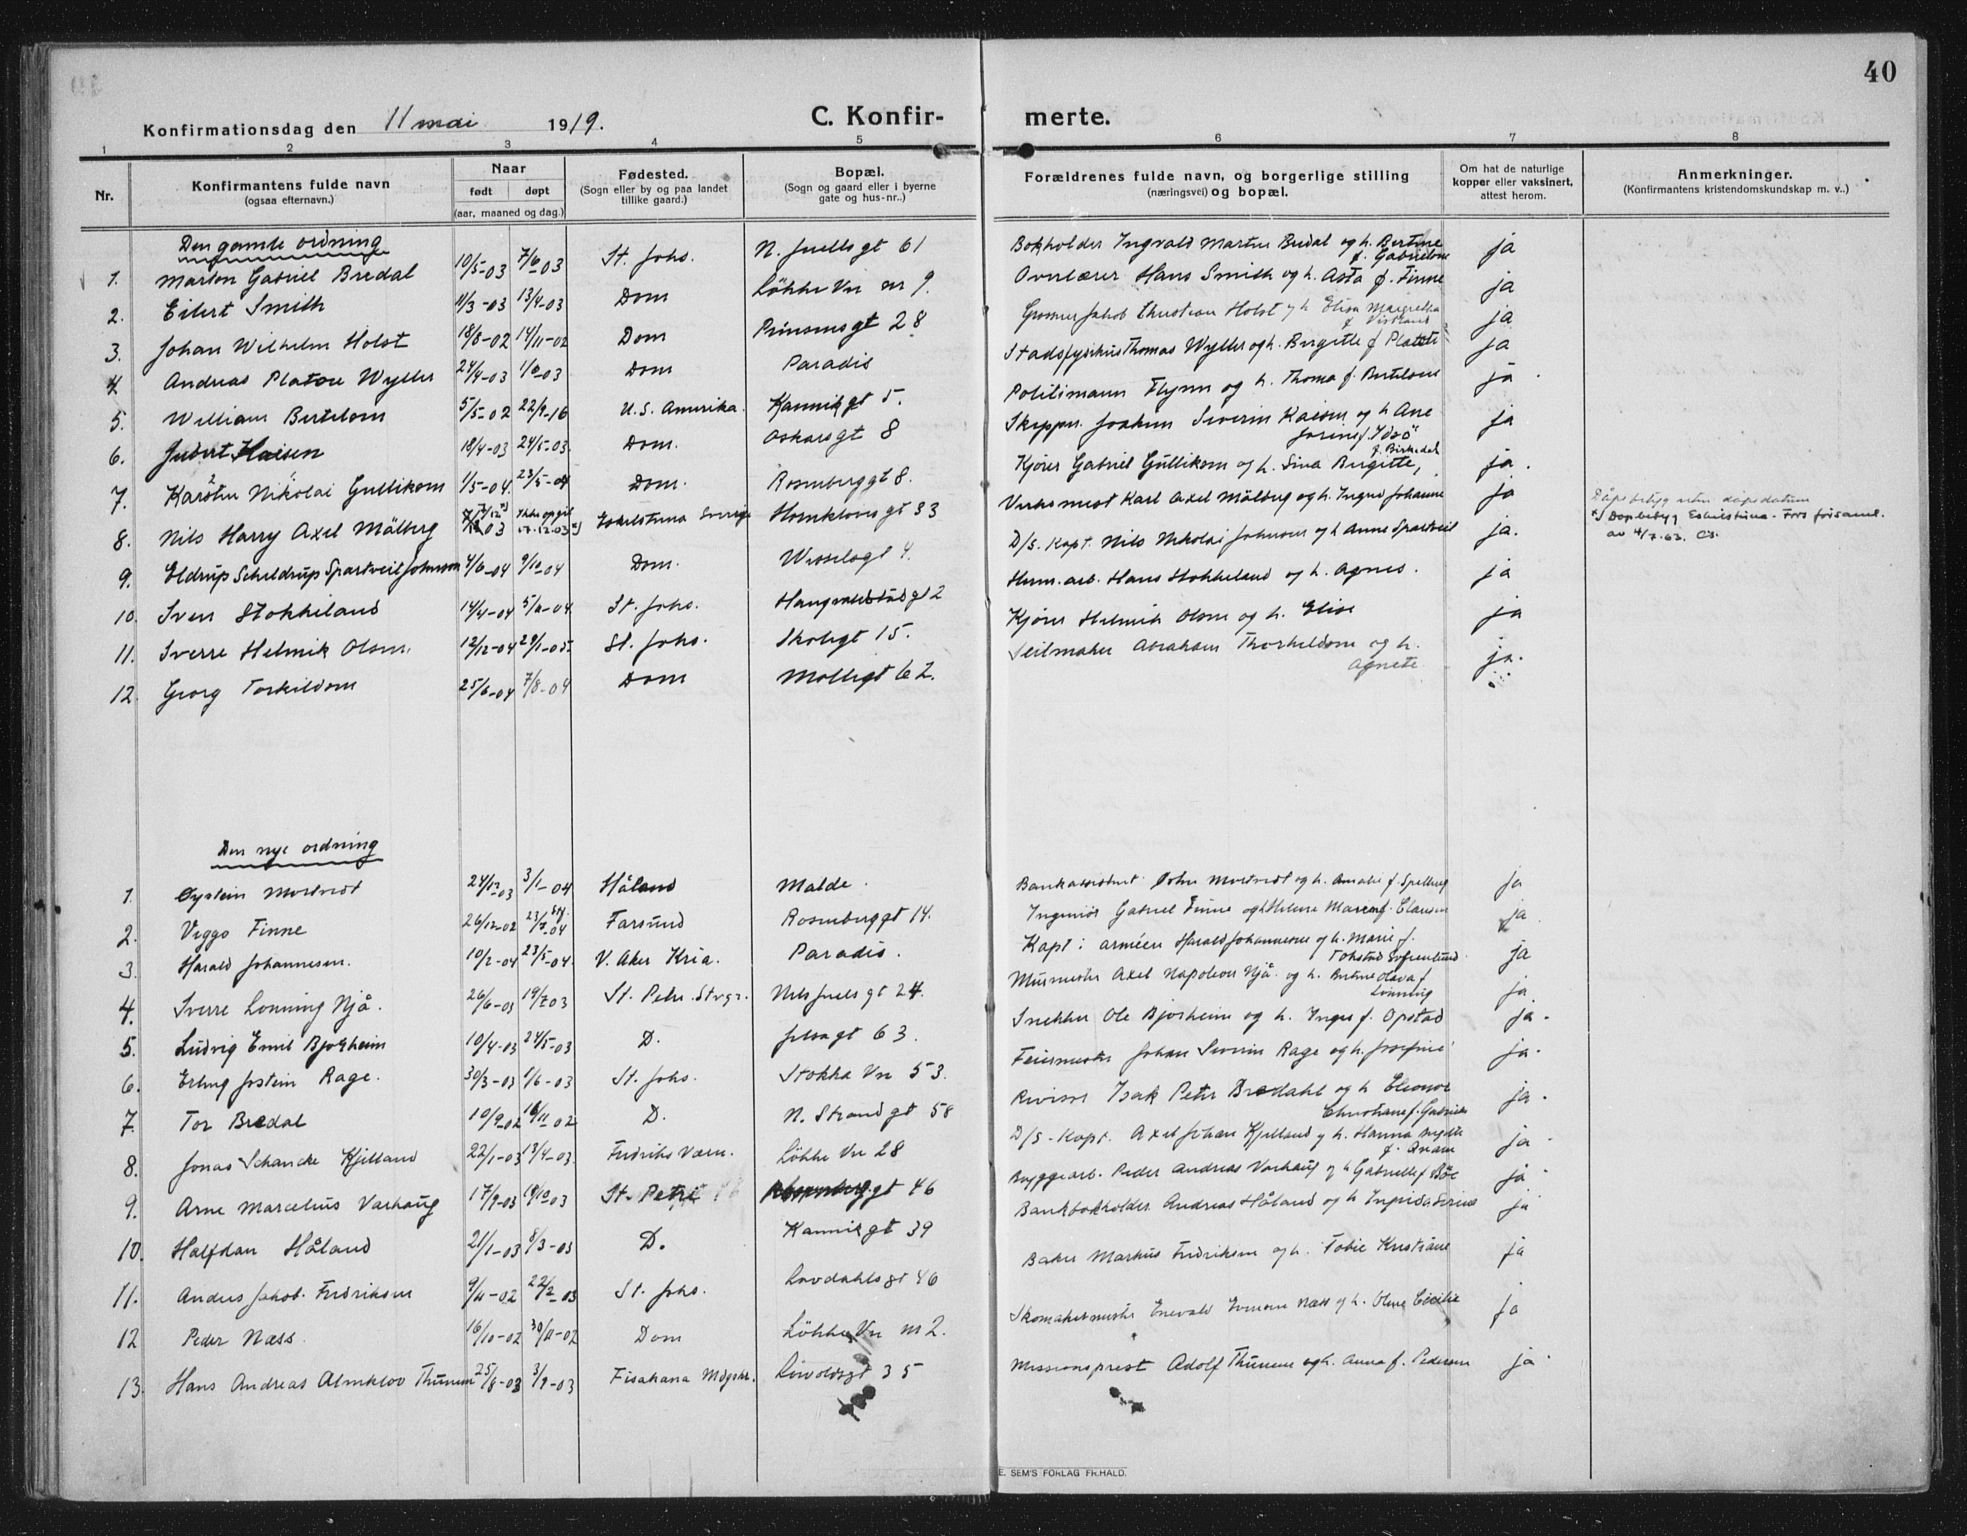 40
Konfirmationsdag den 11 mai 1919.
C. Konfir- merte.
1 2 3 4 5 6 7 8
Nr.
Konfirmantens fulde navn
(ogsaa efternavn.)
Naar
født døpt
(aar, maaned og dag.)
Fødested.
(Sogn eller by og paa landet
tillike gaard.)
Bopæl.
(Sogn og gaard eller i byerne
gate og hus-nr..)
Forældrenes fulde navn, og borgerlige stilling
(næringsvei) og bopæl.
Om hat de naturlige
kopper eller vaksinert,
attest herom.
Anmerkninger.
(Konfirmantens kristendomskundskap m. v..)
Den gamle ordning
1. Marton Gabriel Bredal 10/5-03 7/6 03 St. Johs. N. Juellsgt 61 Bokholder Ingvald Martin Bredal og h. Bertine f. Gabrielsen ja
2. Eilert Smith 11/3-03 13/4-03 Dom Løkke Vn nr 9. Overlærer Hans Smith og h. Asta f. Finne ja
3. Johan Wilhelm Holst 18/8-02 14/11-02 Dom Prinsensgt 28 Jakob Christian Holst og h Elisa Margretha ja
4. Andreas Platou Wyller 24/4-03 03 Dom Paradis Stadsfysikus Thomas Wyller og h. Birgitte f Platou ja
5. William Bertelsen 5/5-02 22/9-16 U.S. Amerika. Kannikgt 5. Politimann Flynn og h. Thoma f. Bertelsen ja
6. 18/4-03 24/5-03 Dom. Oskarsgt 8 Skipper. Joakim Severin Kaisen og h Ane ja
7. Karsten Nikolai Gullikson 1/5-04. 23/5-04 Dom. Rosenberggt 8. Kjører Gabriel Gullikson og h. Sina Birgitte, f. Birkedal ja.
8. Nils Harry Axel Mälberg 03 Eskilstuna Sverige Homklovsgt 33 Verksmest Karl Axel Mälberg og h. Ingrid Johanne ja
9. Eldrup Scheldrup Spartveit Johnson 4/6-04 9/10-04 Dom. Wesselsgt 4. D/s. Kapt. Nils Nikolai Johnson og h Anne Spartveit ja.
av 4/7.63.
10. Sven Stokkeland 14/4-04 St. Johs. Haugvaldstadgt 2 Herm. arb. Hans Stokkeland og h. Agnes. ja
11. Sverre Helmik Olsen 12/12-04 29/1-05. St. Johs. Skolegt 15. Kjører Helmik Olsen og h. Elise ja
12. Georg Torkildsen 25/6-04 7/8-04 Dom Møllegt 62. Seilmaker Abraham Thorkeldsen og h. Agnete ja.
Den nye ordning
1. Øystein Mostvedt 24/12-03 3/1-04 Håland Malde. Bankassistent John Mostvedt og h. Amalie f. ja
2. Viggo Finne 26/12-02 Farsund Rosenberggt 14. Ingeniør Gabriel Finne og h Helene Maren f. Clausen ja
3. Harald Johannesen. 10/2-04 23/5-04. V. Aker Kria. Paradis. Kapt. i arméen Harald Johannesen og h. Marie f. ja
4. Sverre Lønning Njå. 26/6-03 19/7 03 St. Petri. Stvgr. Nils Juelsgt 24. Murmester Axel Napoleon Njå. og h. Bertine Olava f Lønning ja
5. Ludvig Emil Bjorheim 10/4-03 24/5-03 D. Jelsagt 63. Snekker Ole Bjorheim og h. Inger f. Opstad ja.
6. Erling Jostein Rage. 30/3-03 1/6-03 St. Johs. Stokka Vn 53. Feiermester Johan Severin Rage og h. Josefine ja.
7. Tor Bredal 10/9 02 16/11 02 D. N. Strandgt 58 Revisor Isak Peter Bredahl og h Eleonor Christiane f. Gabrielsen ja.
8. Jonas Schancke Kjelland 22/1-03 13/4-03. Fredriks Værn. Løkke Vn 28 D/s-Kapt. Axel Johan Kjelland og h. Hanna Birgitte ja
9. Arne Marcelius Varhaug 17/9-03 03 St. Petri Rosenberggt 46 Byggearb. Peder Andreas Varhaug og h Gabrielle f Bøe ja
10. Halfdan Håland 21/1-03 8/3-03 D. Kannikgt 39 Bankbokholder Andreas Håland og h Ingrida Serine ja
11. Anders Jakob. Fredriksen 9/11-02 22/2-03 St. Johs. Løvdahlsgt 46 Baker Markus Fredriksen og h. Tobie Kristiane ja
12 Peder Næss. 16/10-02 30/11-02 Dom Løkke Vn nr 2. Skomakermester Enevald Næss og h. Oline Cecilie ja
13. Hans Andreas Almklov Thunem 25/8-03 3/9-03 Fisakana Mdgskr. Løvoldsgt 35 Missionsprest Adolf Thunem og h. Anna f. Pedersen ja
E. SEM'S FORLAG FR.HALD.